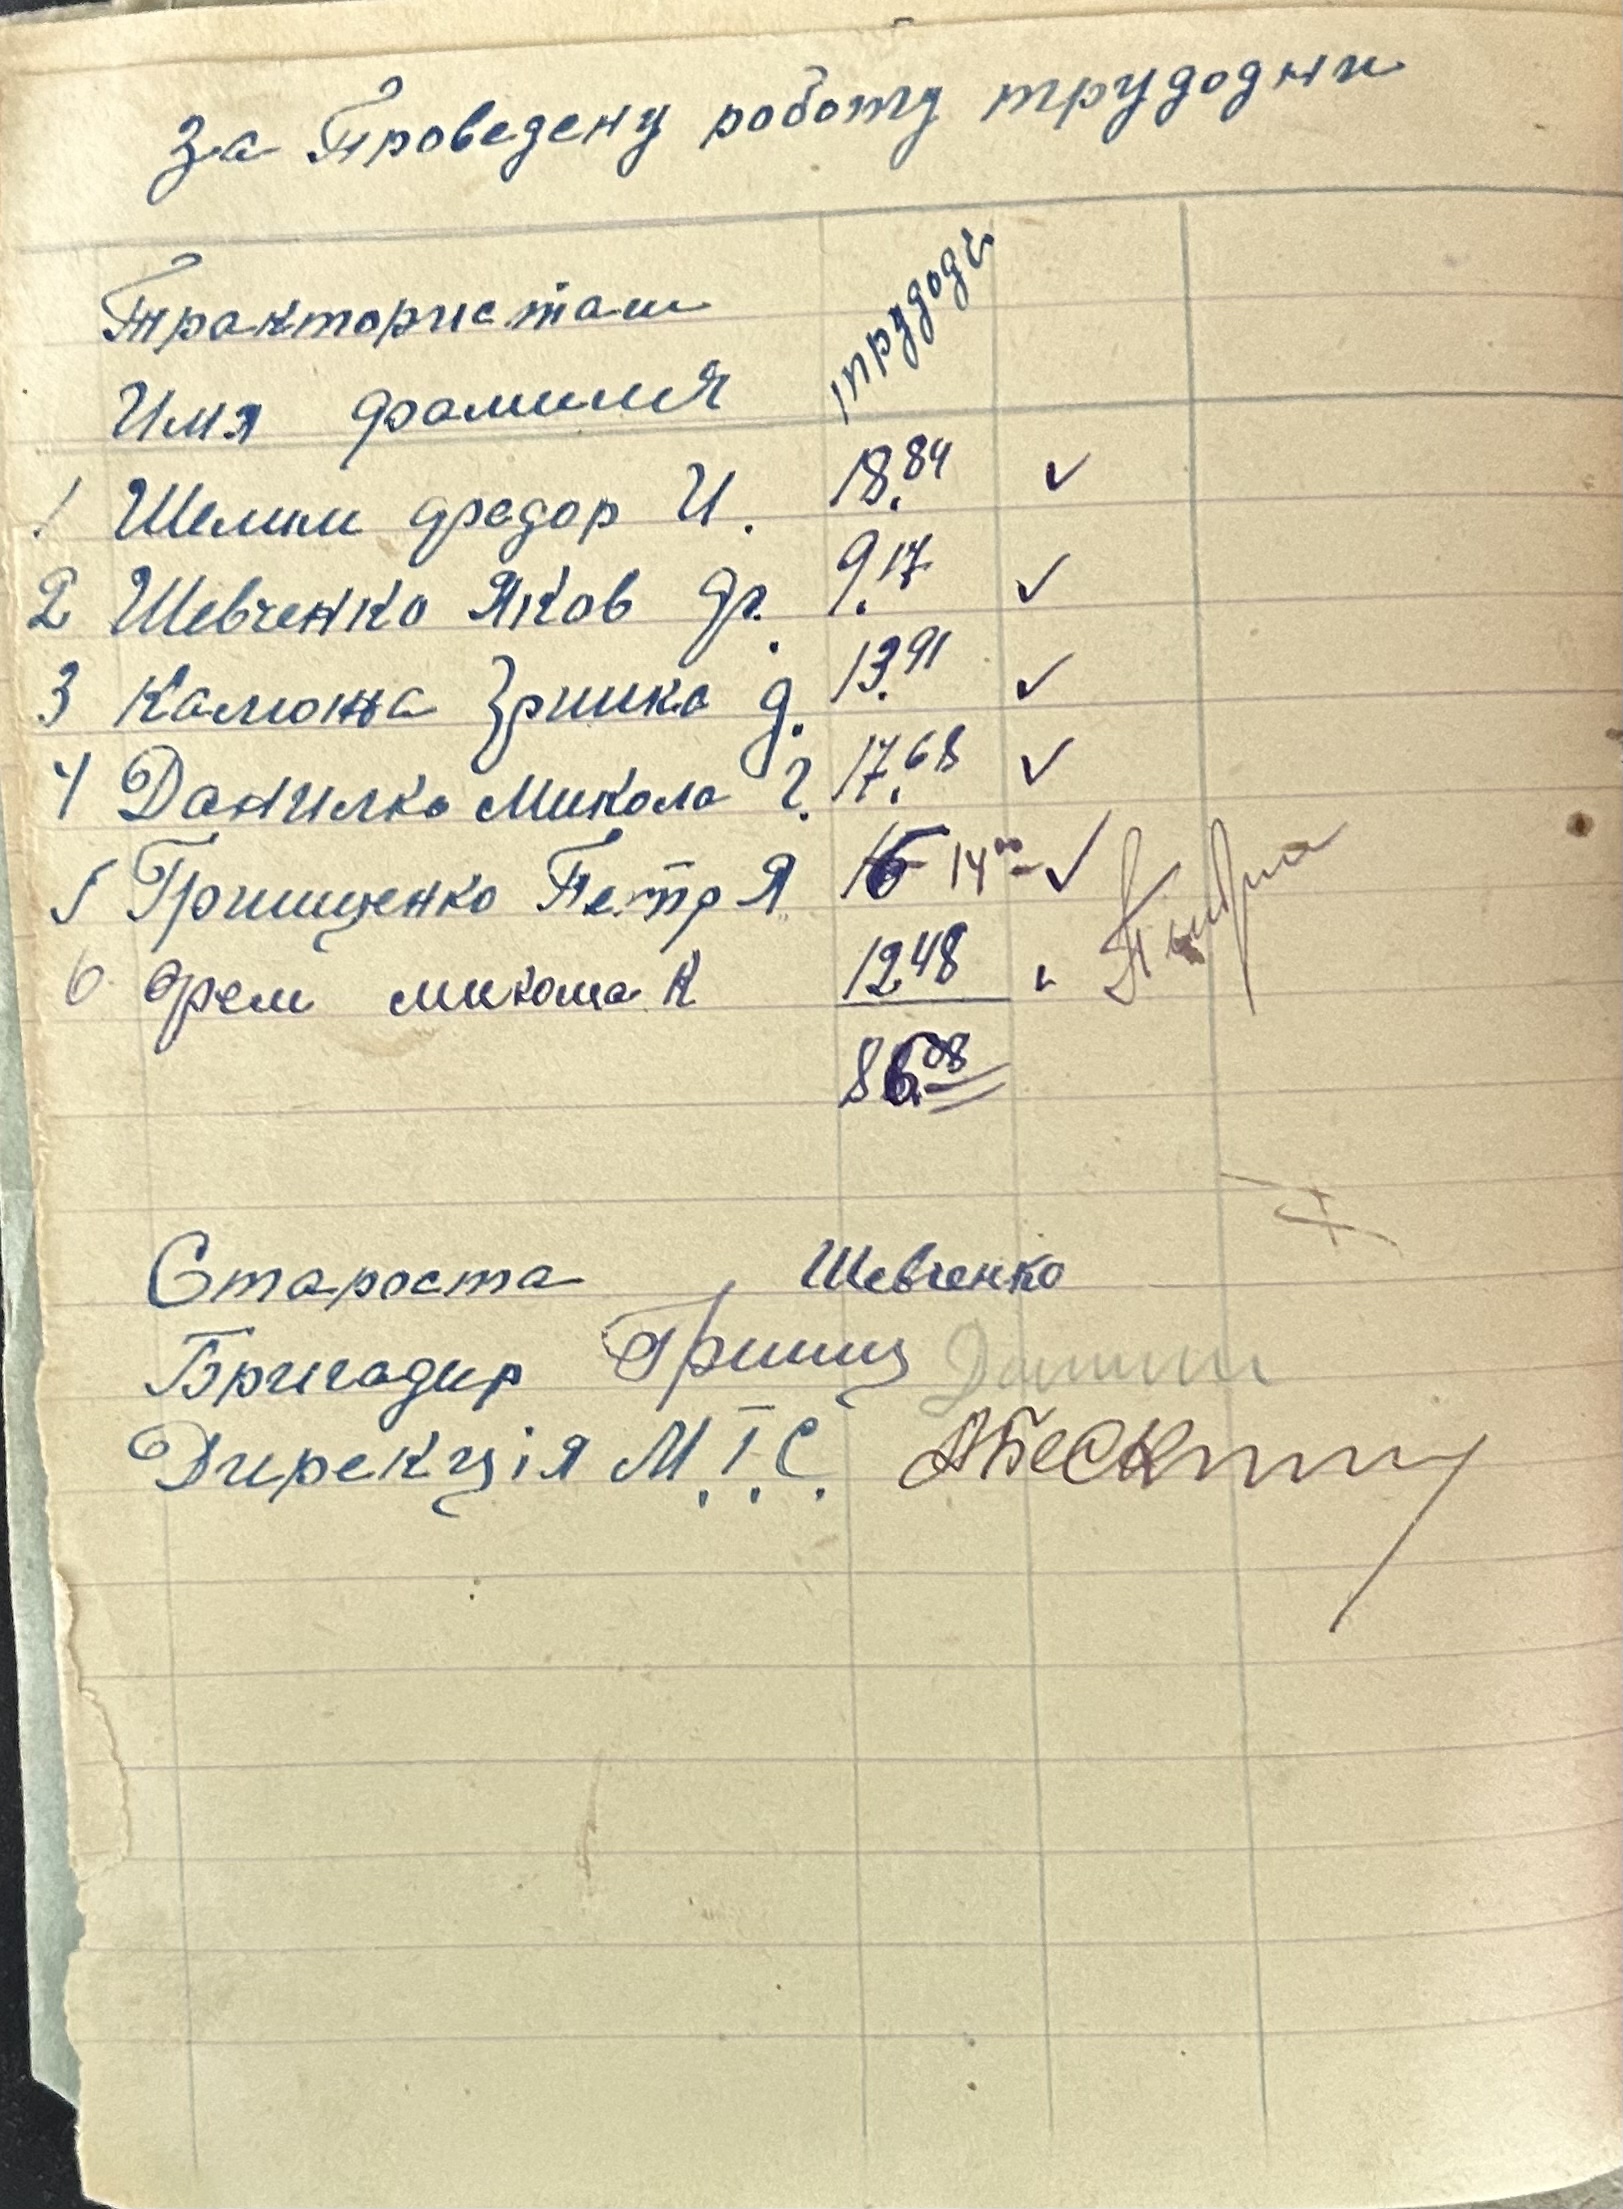 За Проведену роботу трудодни
Трактористам
трудодн
Имя фамилия
1 Шелим Федор И. 18.84 ✓
2 Шевченко Яков Ф. 9.17 ✓
3 Калюжа Гришка Д. 13.91 ✓
4 Данилко Микола Г. 17.68 ✓
5 Грищенко Петр Я 14 00 ✓
6. Микола К 12 48
86.08
Староста Шевченко
Бригадир Грищ
Дирекція М.Т.С.